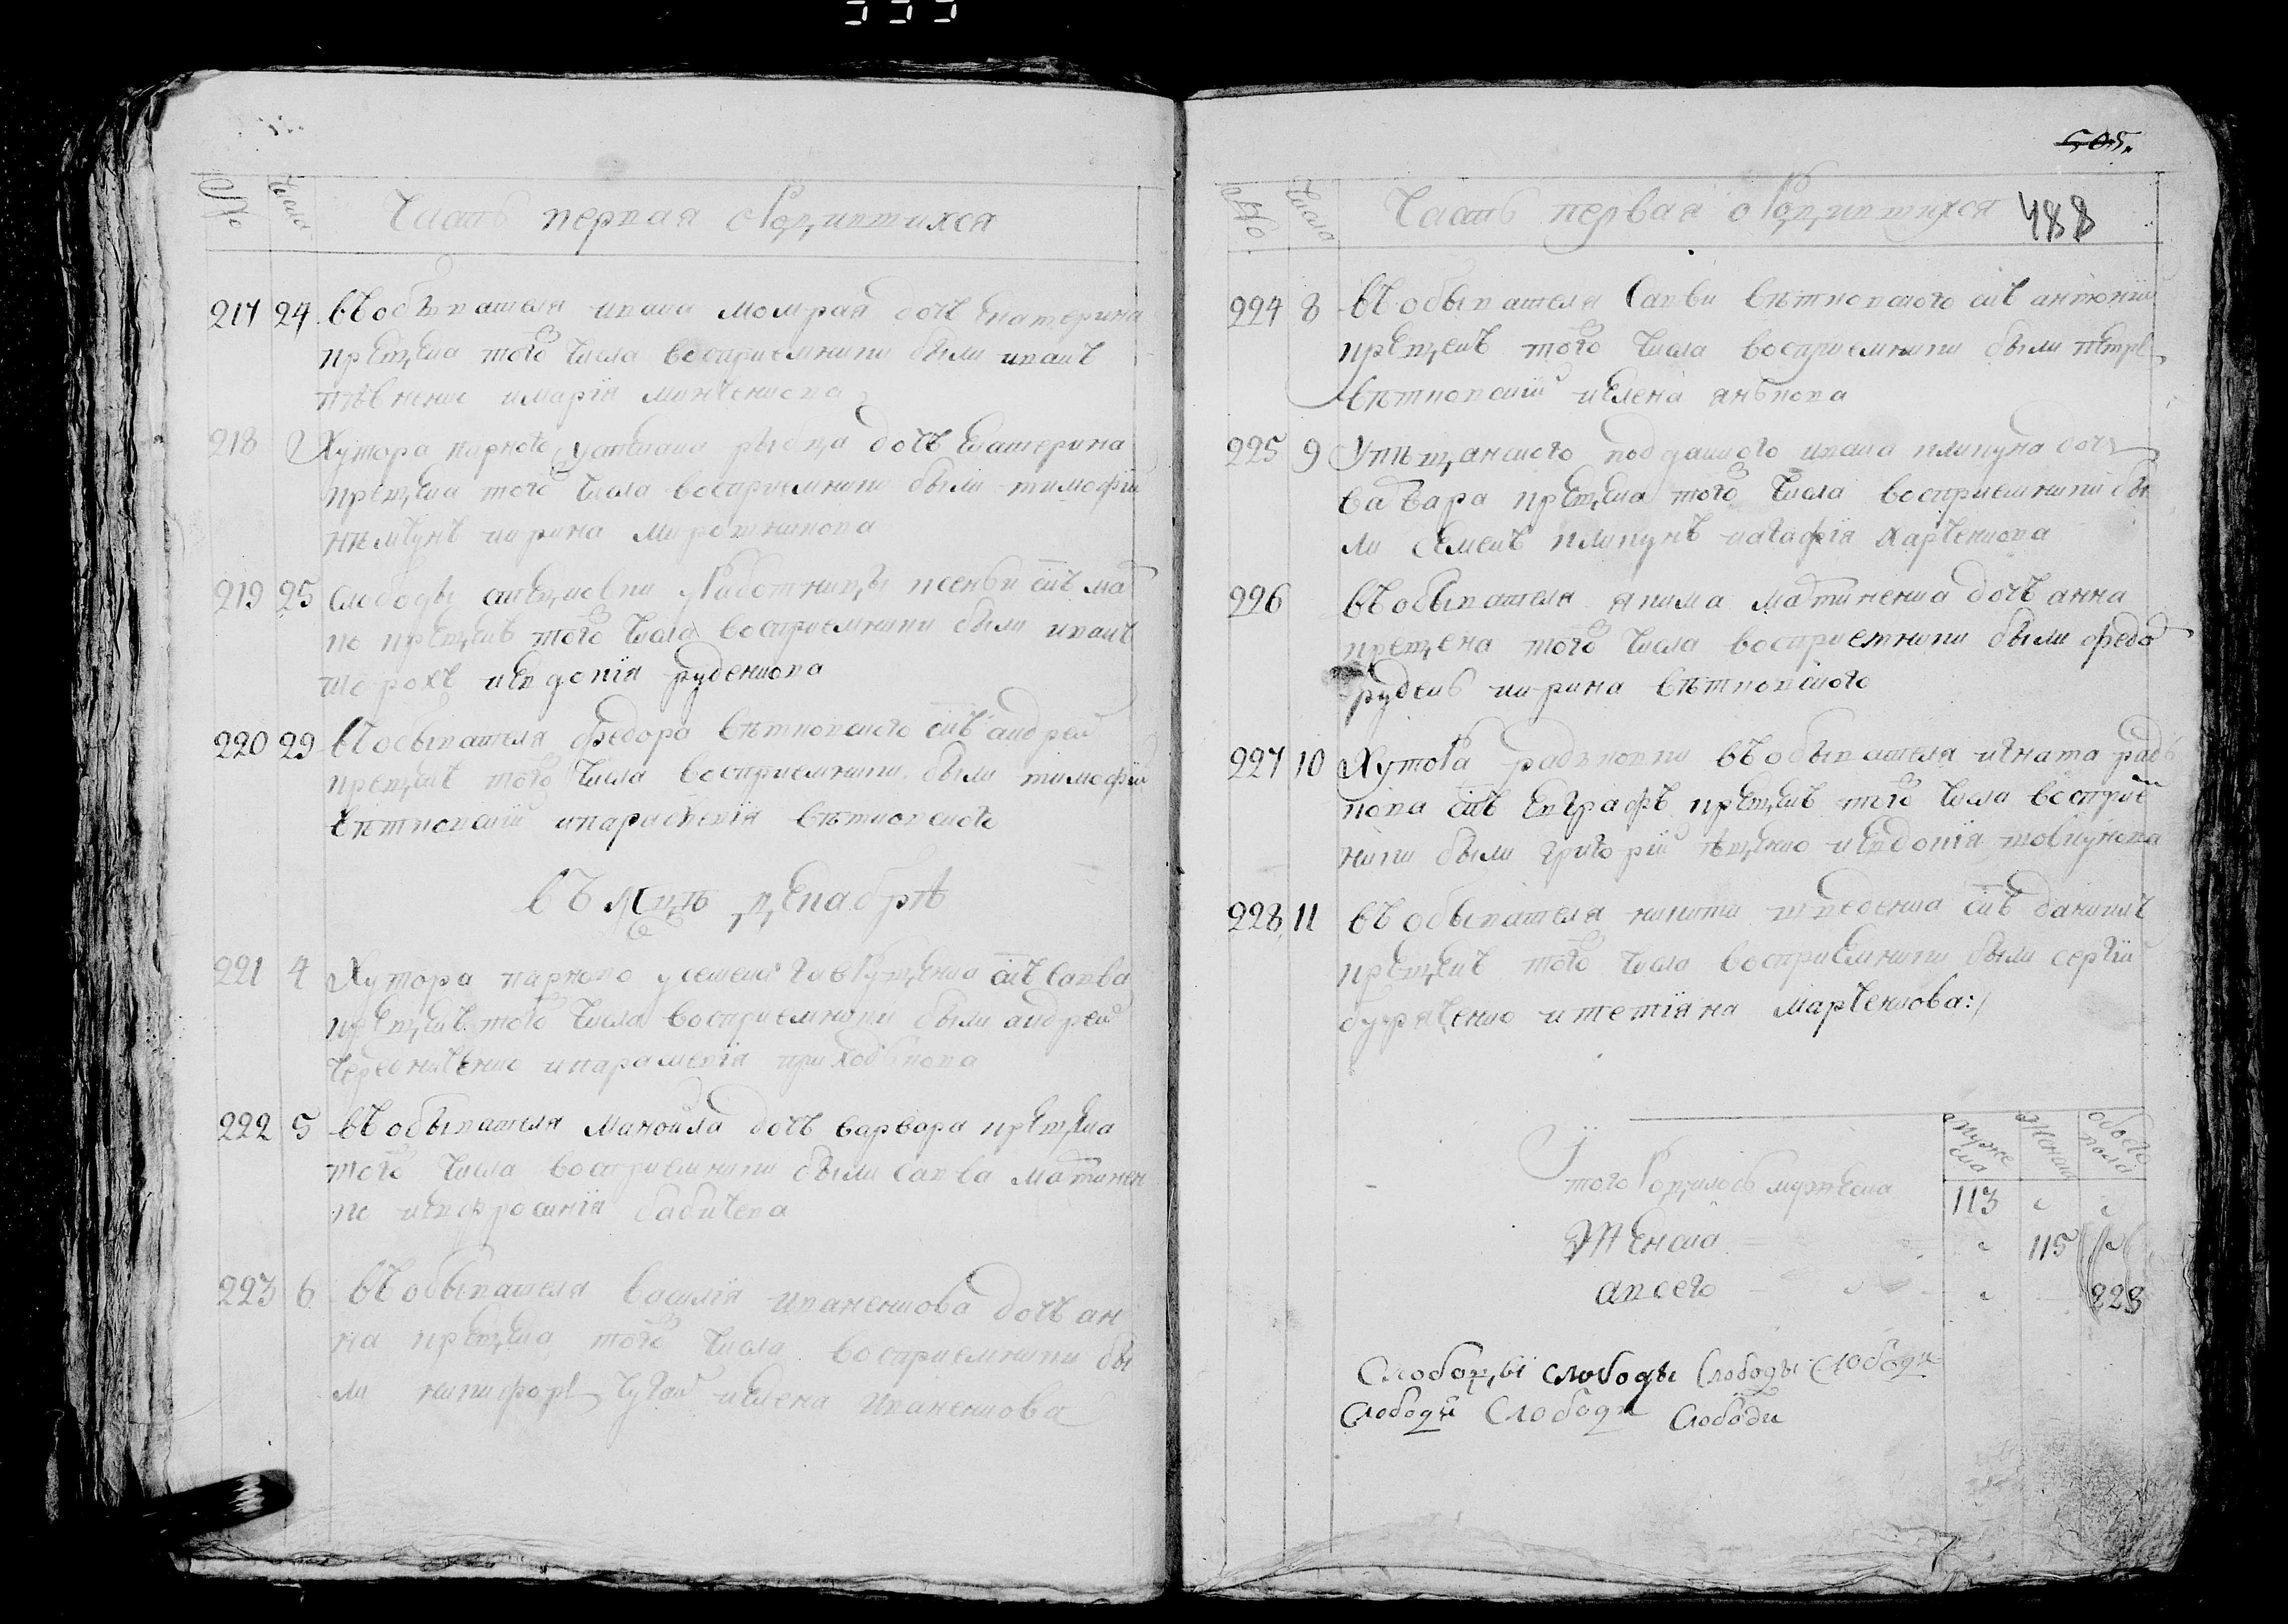 № Числа Часть первая о Родившихся
217 24 въ обывателя ивана момрая дочь Екатерина
крещена того числа восприемники были иванъ
пѣвненко и марія минченкова
218 Хутора парного у даниила рыбца дочь Екатерина
крещена того числа восприемники были тимофѣй
и ирина мирошникова
219 25 слободы у Работницы ксенѣи сынъ мар
ко крещенъ того числа восприемники были иванъ
шорохъ и евдокія руденкова
220 29 въ обывателя федора вѣтковского сынъ андрей
крещенъ того числа восприемники были тимофѣй
вѣтковскій и параскевія вѣтковского
въ мцѣ декабрѣ
221 4 Хутора парного у семена сынъ савва
крещенъ того числа восприемники были андрей
и параскевія приходькова
222 5 въ обывателя манойла дочь варвара крещена
того числа восприемники были савва мартинен
ко и евфросинія бабичева
223 6 въ обывателя василія иваненкова дочь ан
на крещена того числа восприемники бы
ли никифоръ чугай и елена иваненкова
505.
№ Числа Часть первая о Родившихся 488
224 8 въ обывателя саввы вѣтковского сынъ антоній
крещенъ того числа восприемники были петръ
вѣтковскій и елена янькова
225 9 У подданого ивана плипуна дочь
варвара крещена того числа восприемники бы
ли семенъ плипунъ и агафія харченкова
226 въ обывателя якима мартиненка дочь анна
крещена того числа восприемники были федо
рудень и ирина вѣтковского
227 10 Хутора радьковки въ обывателя игната радь
кова сынъ евграфъ крещенъ того числа восприем
ники были григорій и евдокія товкунова
228 11 въ обывателя никиты шведенка сынъ даниилъ
крещенъ того числа восприемники были сергій
и тетіяна марченкова:/
мужеска женска обоего пола
Итого Родилось мужеска 113
Женска 115
авсего 228
Слободы слободы Слободы Слободи
Слободи Слободи Слободи